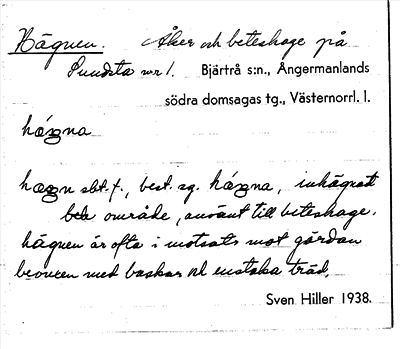 Hägnen. Åker och beteshage på
Sundsta nr 1. Bjärtrå s:n., Ångermanlands
södra domsagas tg., Västernorrl. l.
hægna
hægn sbt. f., best. sg. hægna, inhägnat
område, använt till beteshage.
hägnen är ofta i motsats mot gårdan
bevuxen med buskar el enstaka träd.
Sven Hiller 1938.